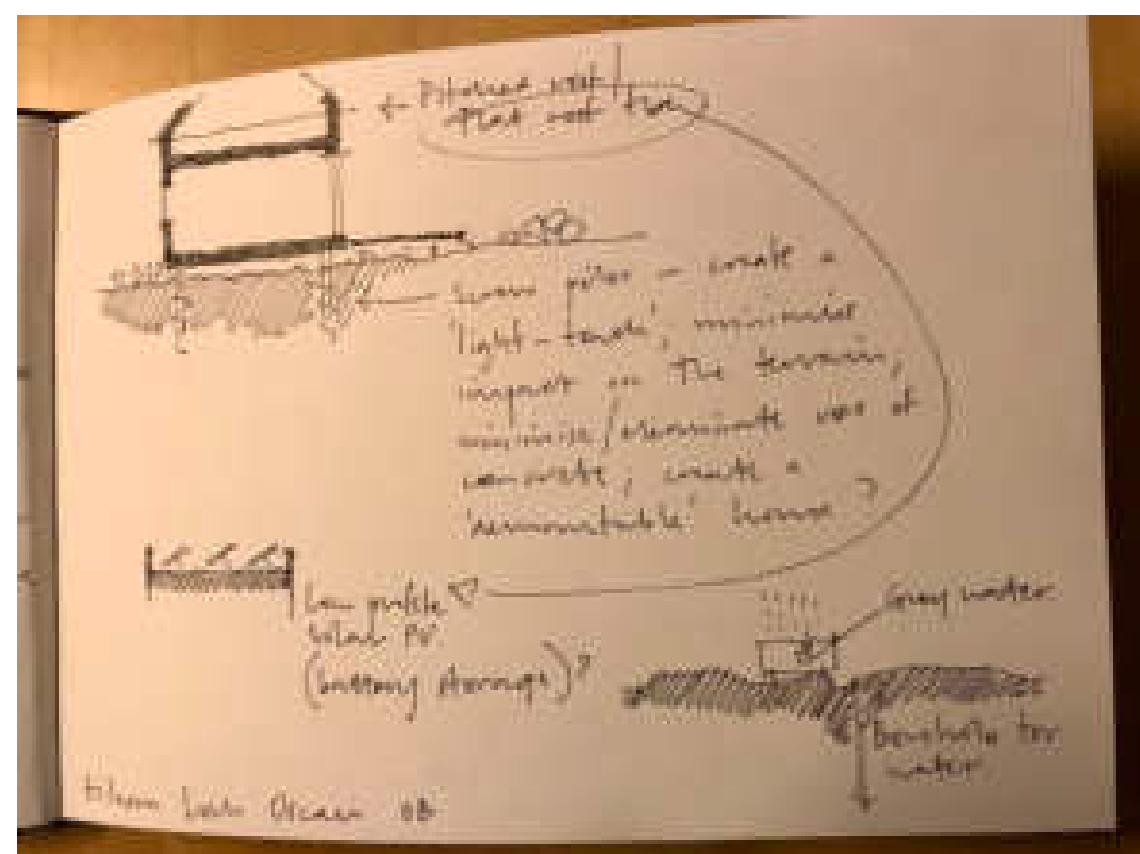 ← Pitched roof /
Flat roof
Screw piles – create a
'light-touch', minimise
impact on the terrain,
minimise/eliminate use of
concrete; create a
'demountable' house ?
Low profile
solar PV
(battery storage)?
Grey water
Borehole for
water